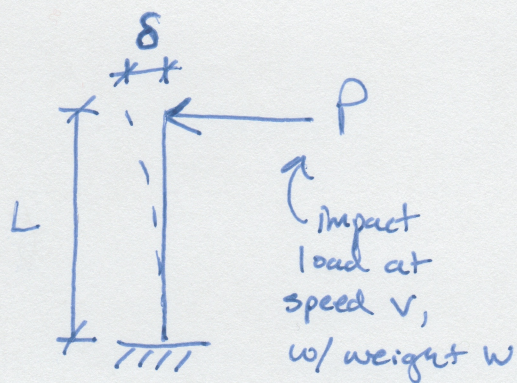 δ
P
L
impact
load at
speed v,
w/ weight W